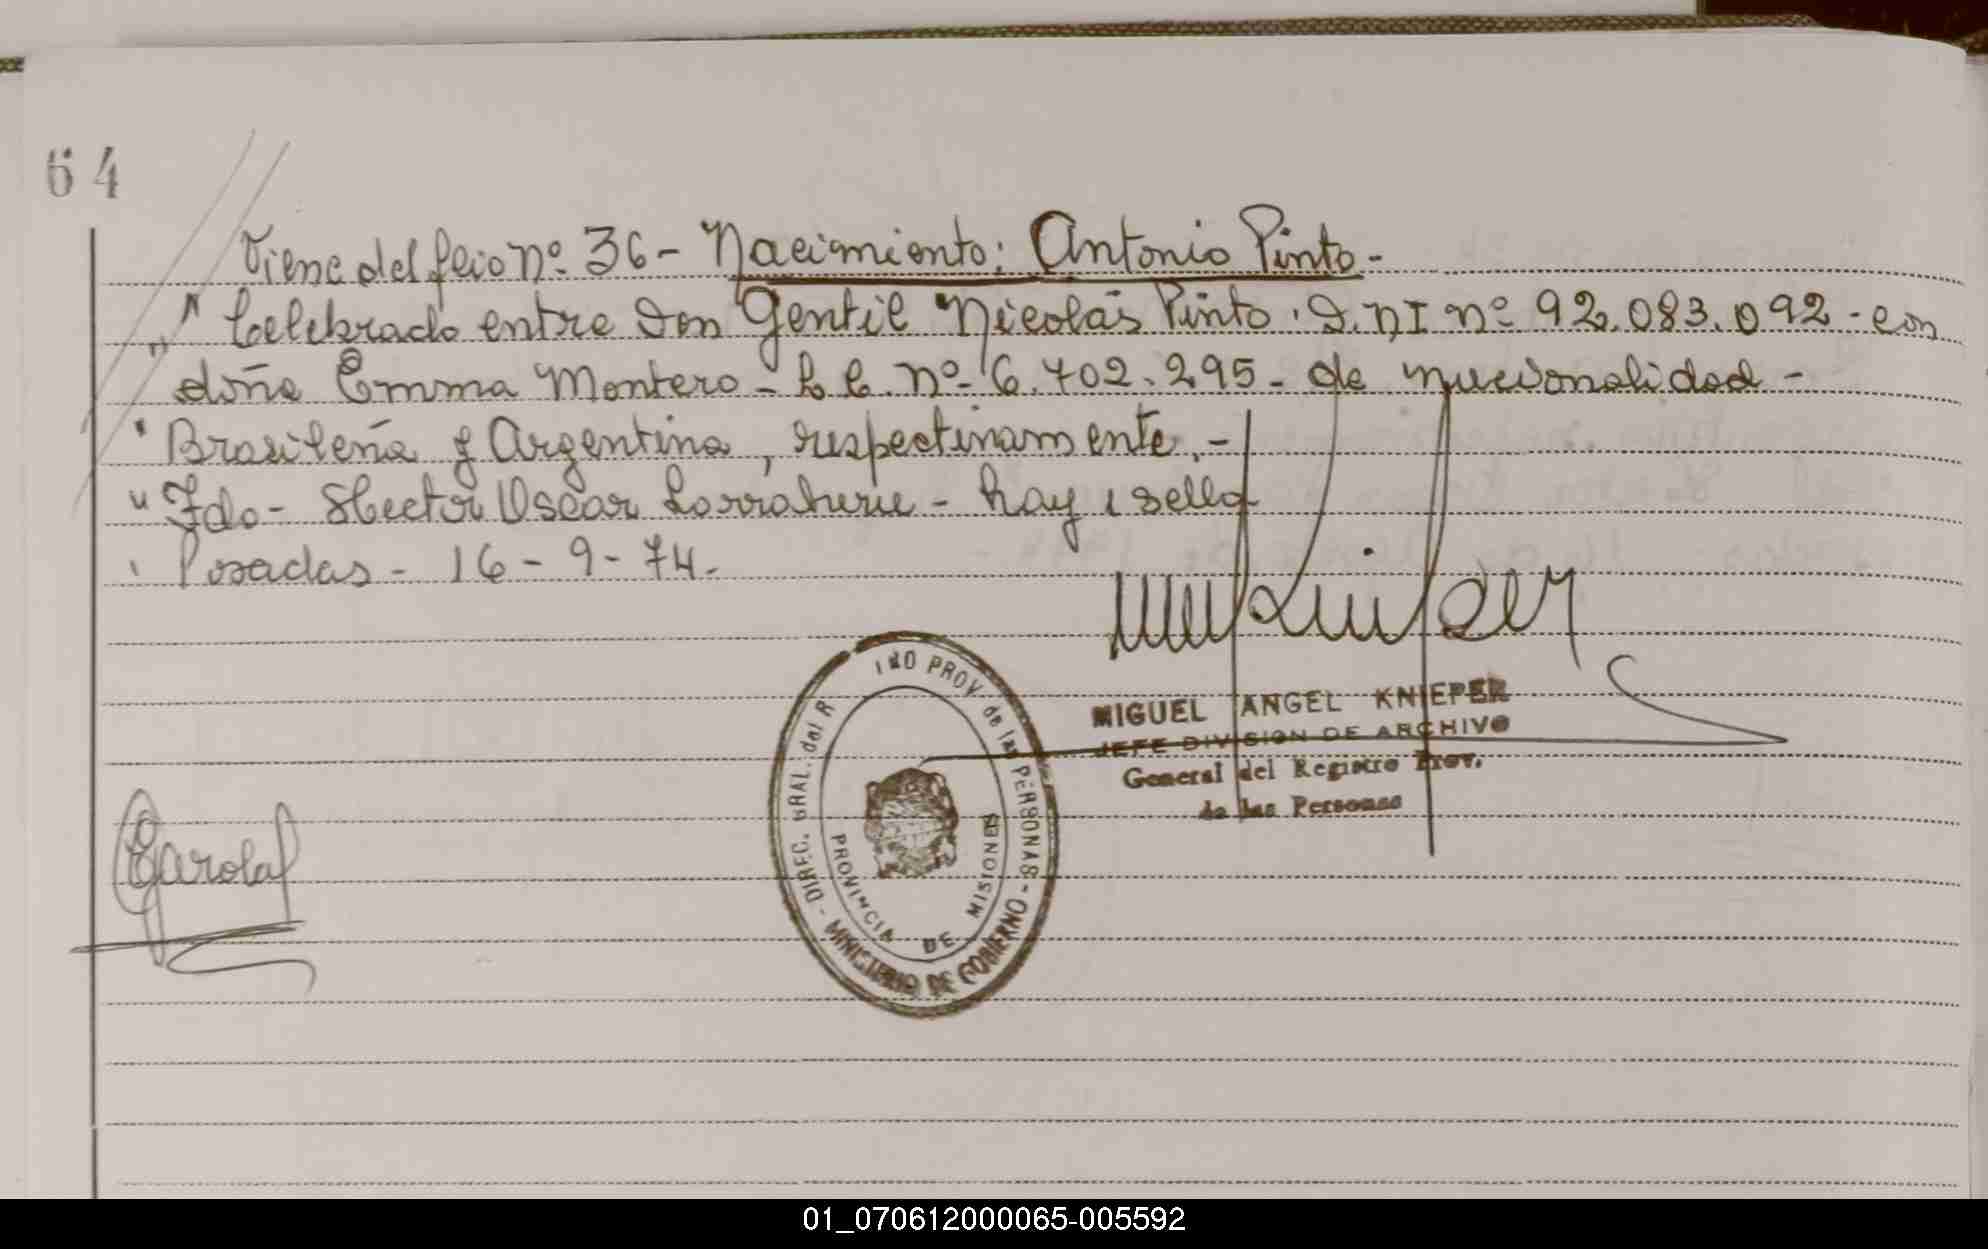 64
Viene del folio nº 36 - Nacimiento: Antonio Pinto -
" Celebrado entre Don Gentil Nicolás Pinto. D.NI nº 92.083.092 - con
" doña Emma Montero - L C. nº 6.702.295 - de nacionalidad -
" Brasileña y Argentina, respectivamente. -
" Fdo - Hector Oscar - hay 1 sello
" Posadas - 16 - 9 - 74.
DIREC. GRAL. del R PROV. de las PERSONAS - MINISTERIO DE GOBIERNO -
PROVINCIA DE MISIONES
MIGUEL ANGEL KNIEPER
JEFE DIVISION DE ARCHIVO
General del Registro Prov.
de las Personas
01_070612000065-005592